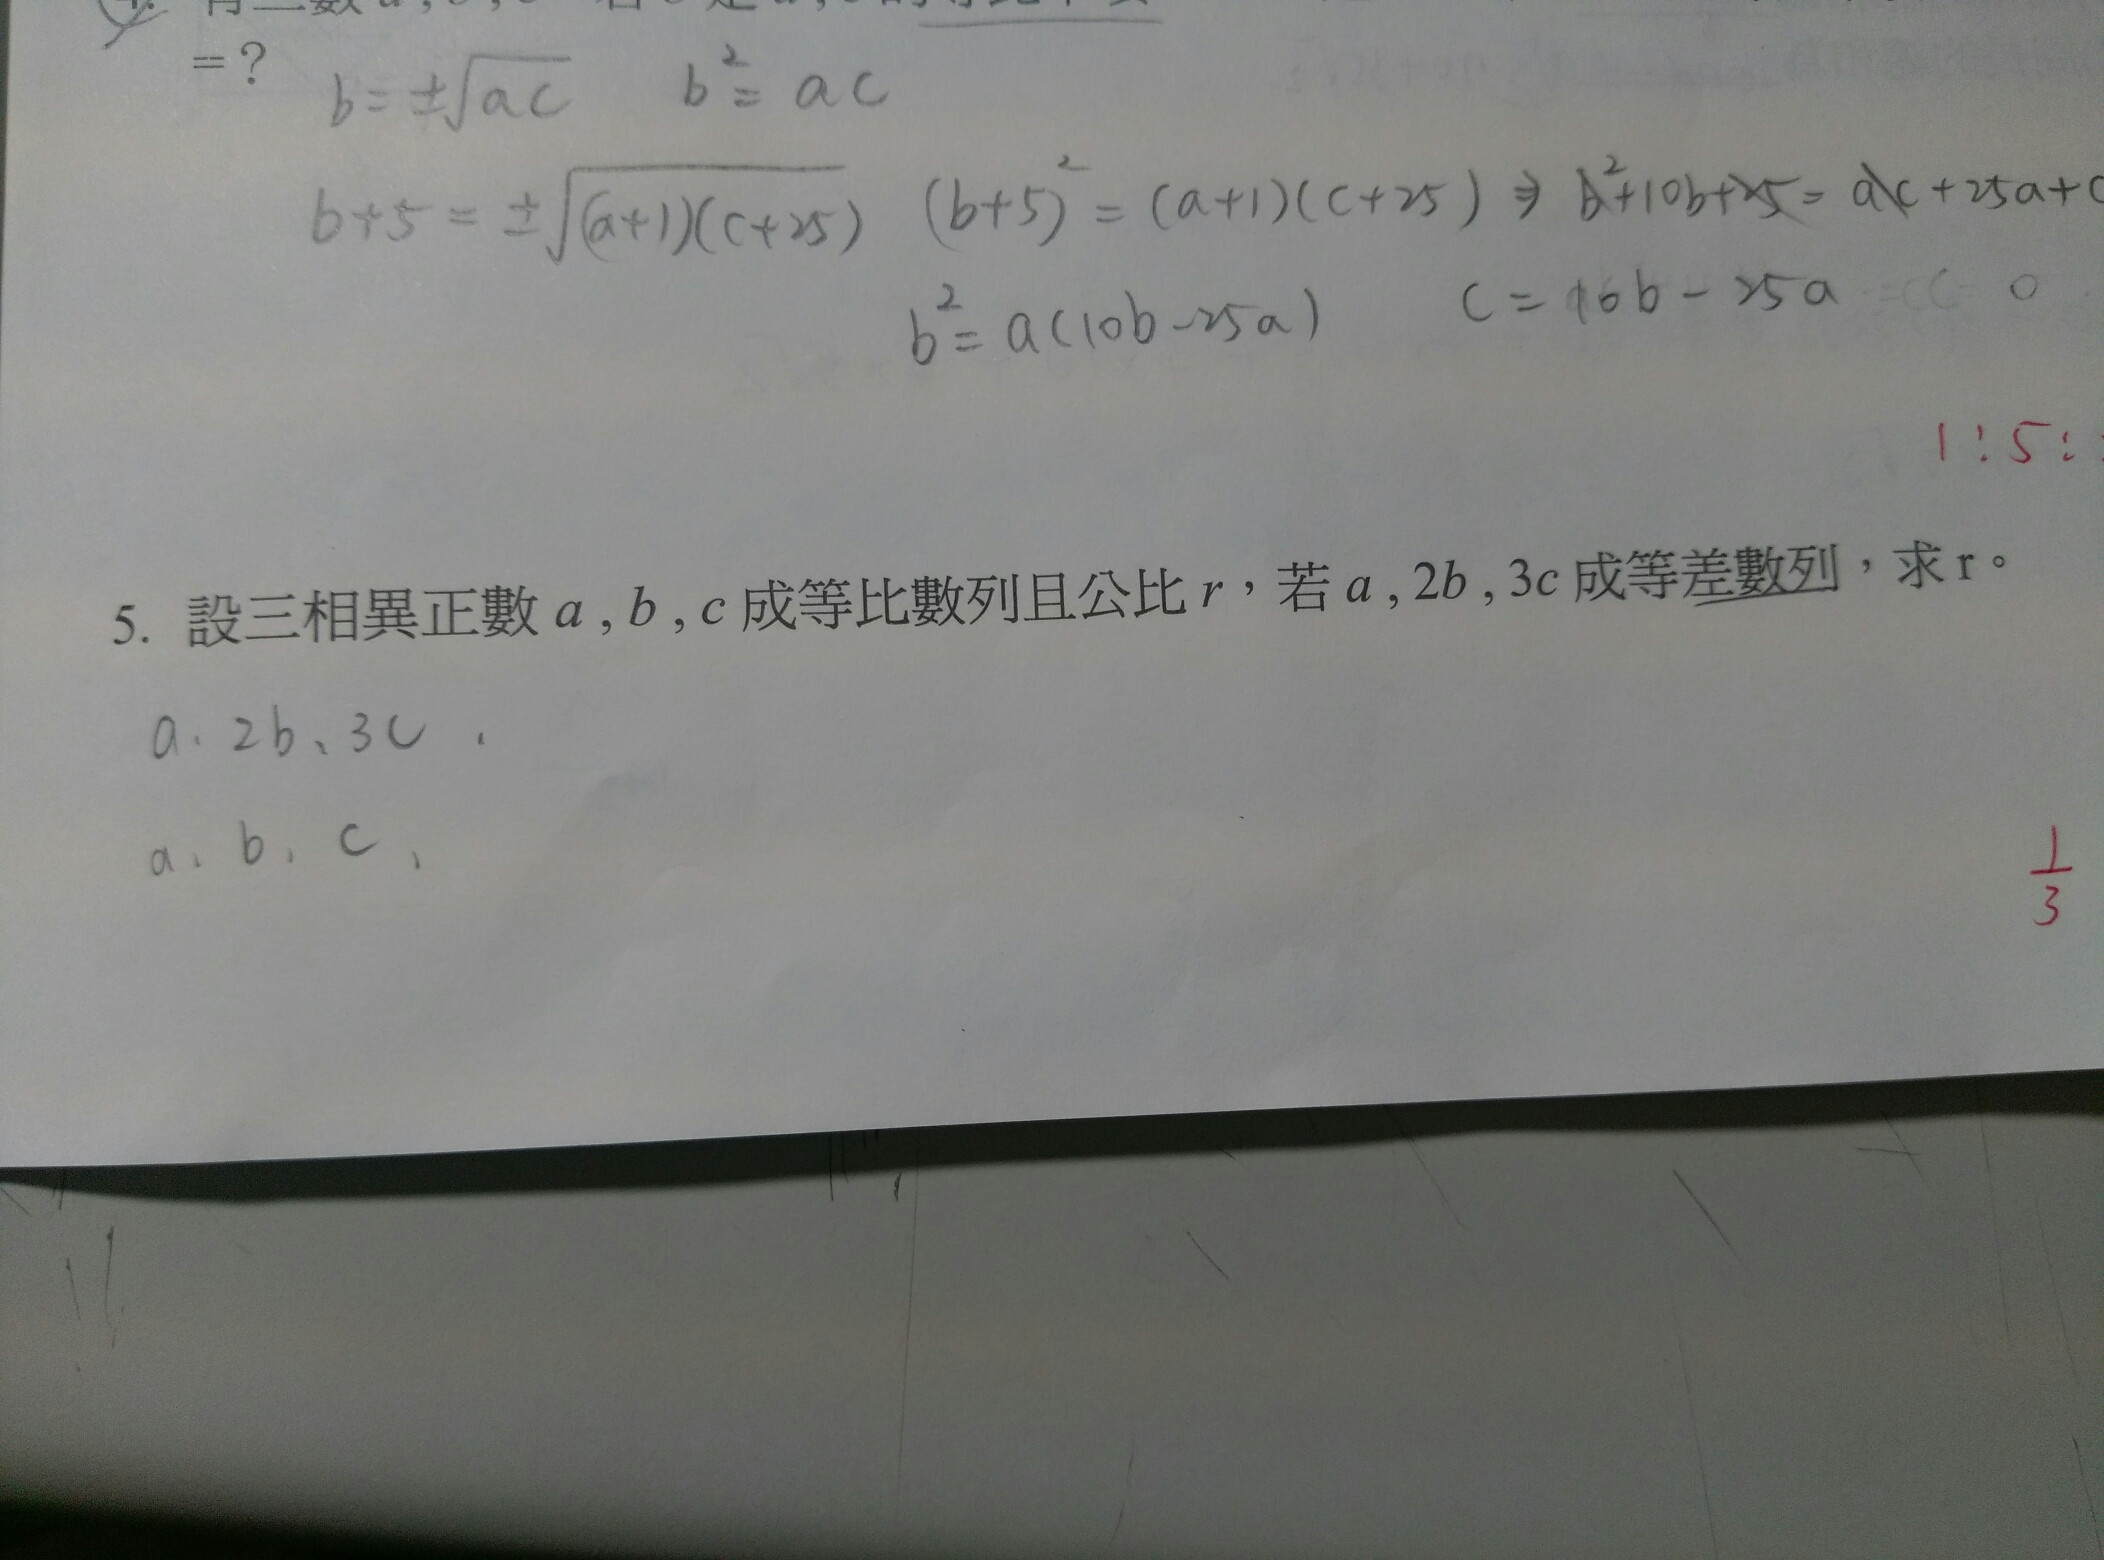 =?
b=±√ac b²=ac
b+5=±√(a+1)(c+25) (b+5)²=(a+1)(c+25)⇒b²+10b+25=ac+25a+c
b²=a(10b-25a) c=10b-25a
1:5:
5. 設三相異正數 a , b , c 成等比數列且公比 r，若 a , 2b , 3c 成等差數列，求 r。
a、2b、3c、
a、b、c、
1/3